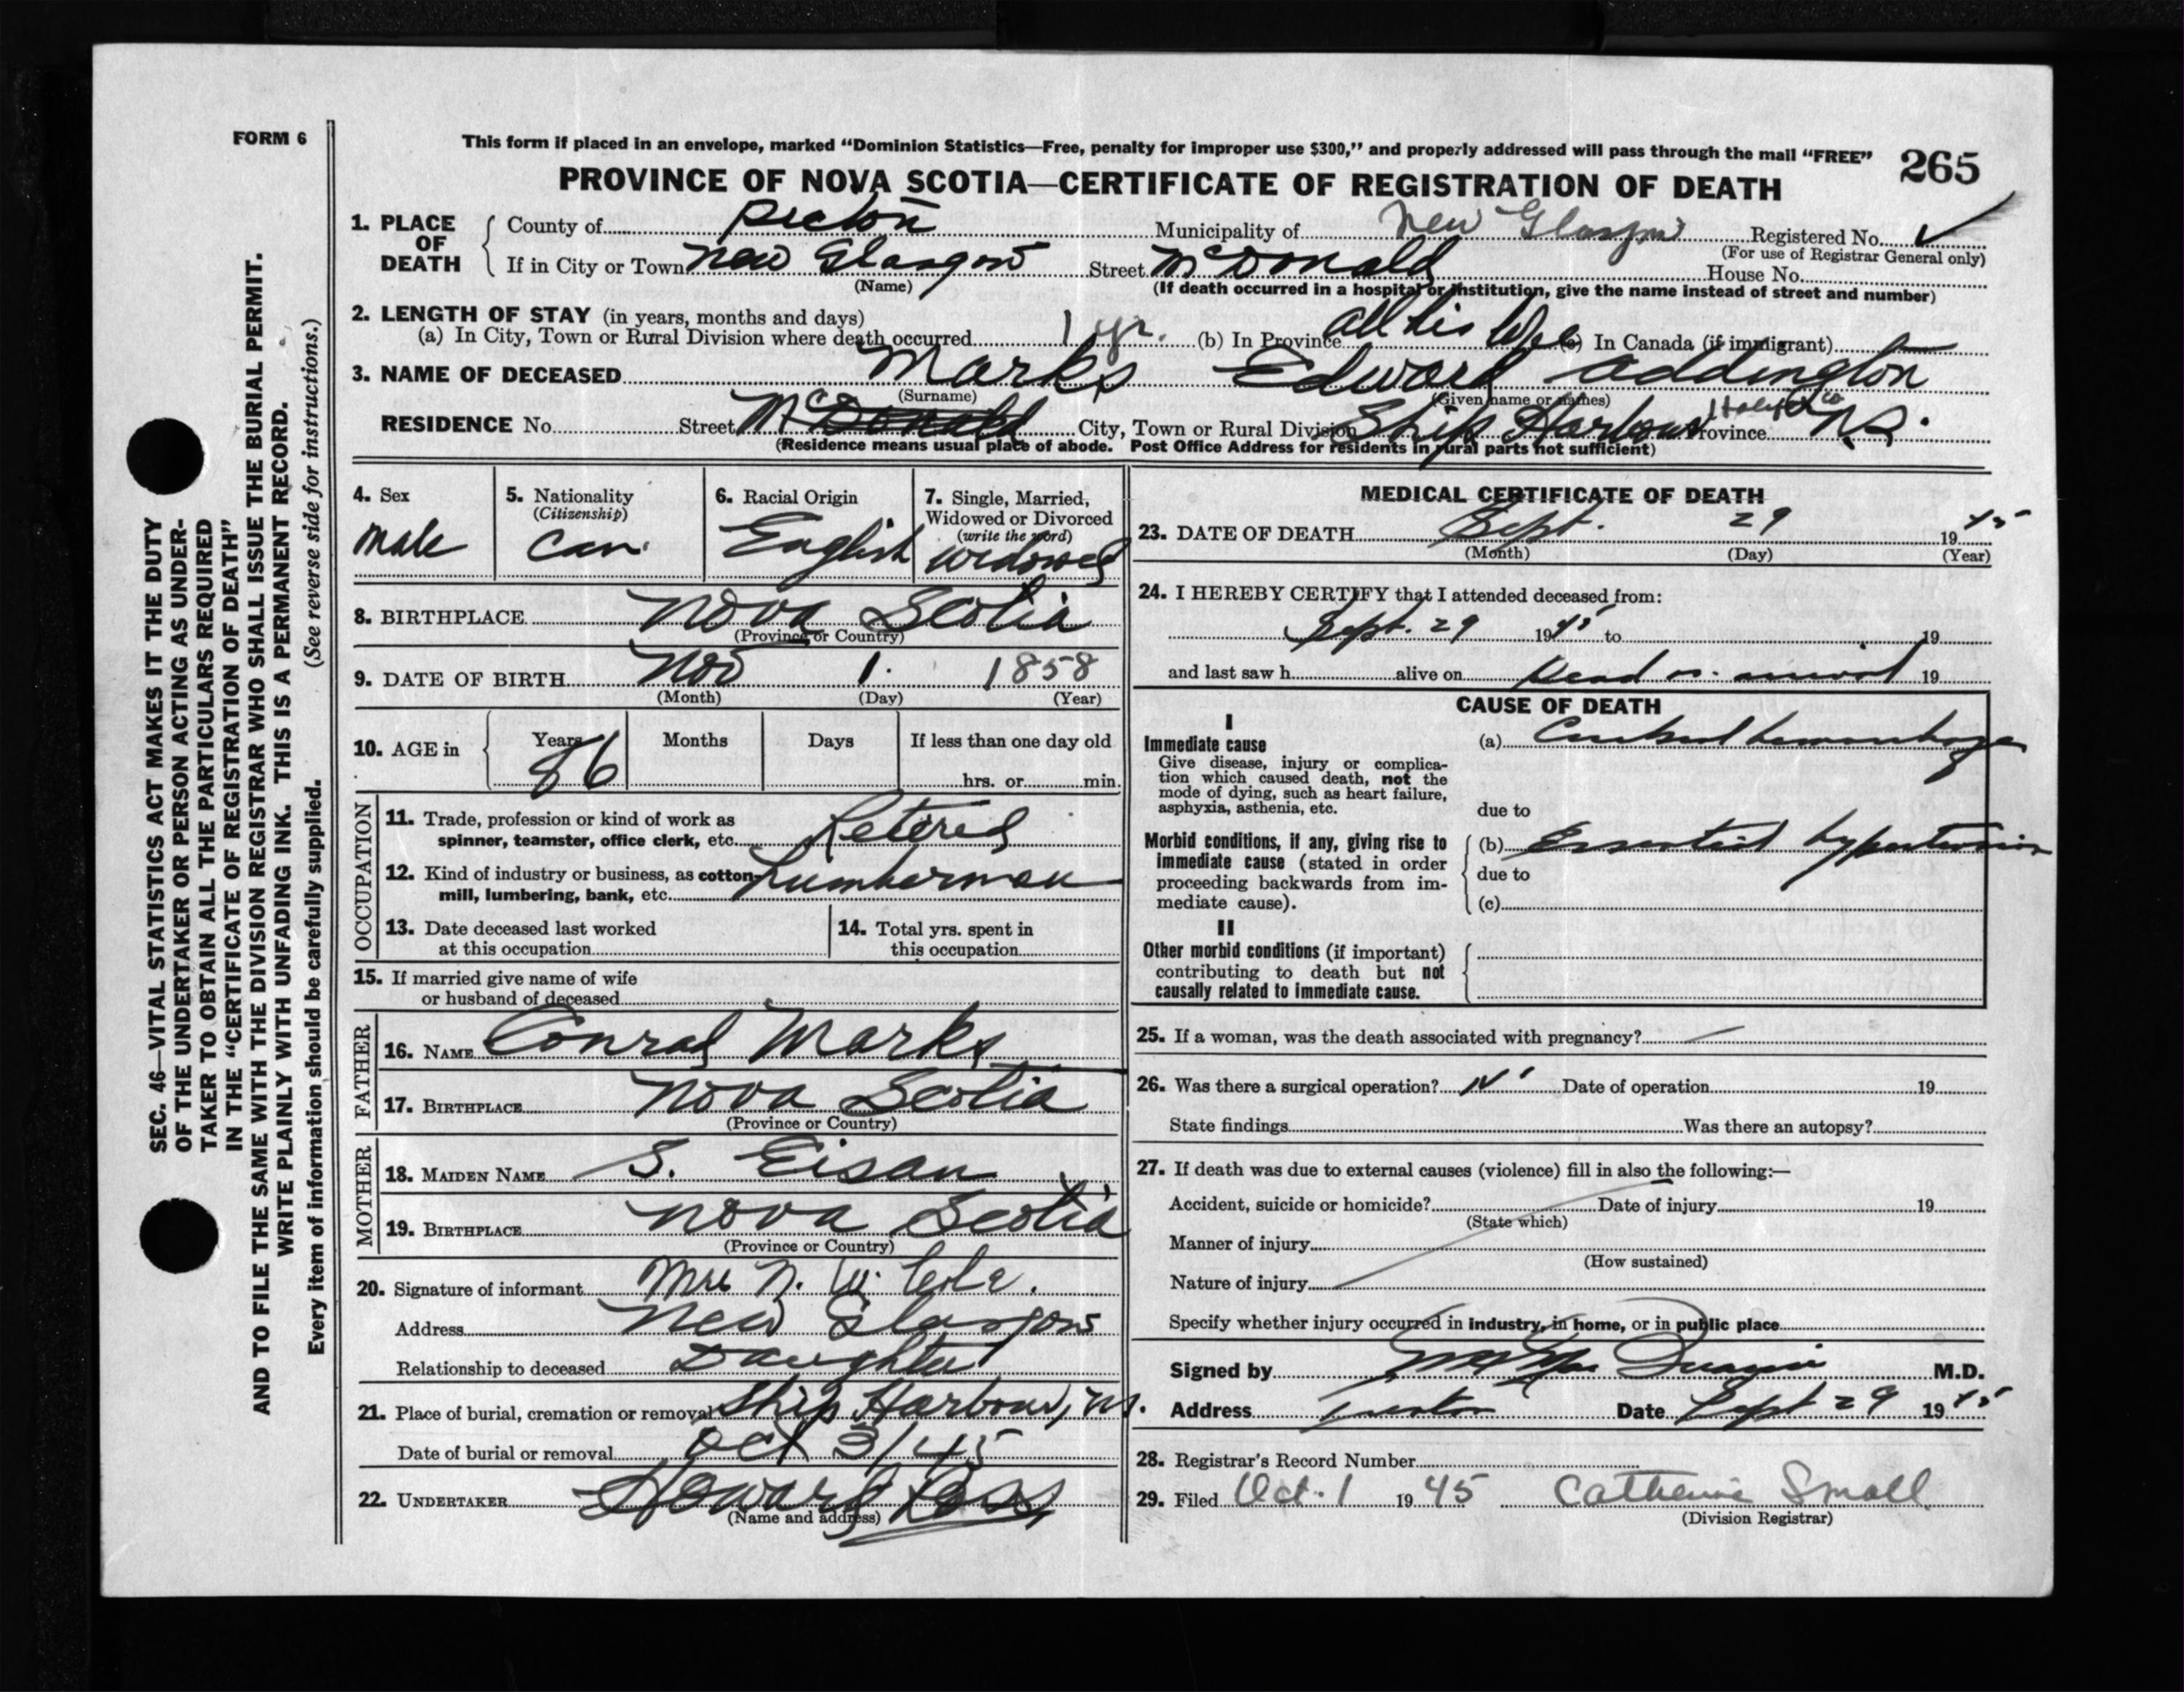 FORM 6
This form if placed in an envelope, marked “Dominion Statistics—Free, penalty for improper use $300,” and properly addressed will pass through the mail “FREE”
265
PROVINCE OF NOVA SCOTIA—CERTIFICATE OF REGISTRATION OF DEATH
1. PLACE OF DEATH
County of Pictou Municipality of New Glasgow Registered No. ✓
(For use of Registrar General only)
If in City or Town New Glasgow Street McDonald House No.
(Name) (If death occurred in a hospital or institution, give the name instead of street and number)
2. LENGTH OF STAY (in years, months and days)
(a) In City, Town or Rural Division where death occurred 1 yr. (b) In Province all his life (c) In Canada (if immigrant) —
3. NAME OF DECEASED Marks Edward Addington
(Surname) (Given name or names)
RESIDENCE No. Street McDonald City, Town or Rural Division Ship Harbour Halifax Co Province N.S.
(Residence means usual place of abode. Post Office Address for residents in rural parts not sufficient)
4. Sex
male
5. Nationality
(Citizenship)
Can.
6. Racial Origin
English
7. Single, Married,
Widowed or Divorced
(write the word)
widowed
8. BIRTHPLACE Nova Scotia
(Province or Country)
9. DATE OF BIRTH Nov 1. 1858
(Month) (Day) (Year)
10. AGE in Years Months Days If less than one day old
86 hrs. or min.
OCCUPATION
11. Trade, profession or kind of work as
spinner, teamster, office clerk, etc. Retered
12. Kind of industry or business, as cotton-
mill, lumbering, bank, etc. Lumberman
13. Date deceased last worked
at this occupation
14. Total yrs. spent in
this occupation
15. If married give name of wife
or husband of deceased
FATHER
16. NAME Conrad Marks
17. BIRTHPLACE Nova Scotia
(Province or Country)
MOTHER
18. MAIDEN NAME S. Eisan
19. BIRTHPLACE Nova Scotia
(Province or Country)
20. Signature of informant Mrs N. W.
Address New Glasgow
Relationship to deceased Daughter
21. Place of burial, cremation or removal Ship Harbour, N.S.
Date of burial or removal Oct 3/45
22. UNDERTAKER Howard Ross
(Name and address)
MEDICAL CERTIFICATE OF DEATH
23. DATE OF DEATH Sept. 29 1945
(Month) (Day) (Year)
24. I HEREBY CERTIFY that I attended deceased from:
Sept. 29 1945 to 19
and last saw h alive on Dead on arrival 19
CAUSE OF DEATH
I
Immediate cause
Give disease, injury or complica-
tion which caused death, not the
mode of dying, such as heart failure,
asphyxia, asthenia, etc.
(a) Cerebral hemorrhage
due to
Morbid conditions, if any, giving rise to
immediate cause (stated in order
proceeding backwards from im-
mediate cause).
(b) Essential hypertension
due to
(c)
II
Other morbid conditions (if important)
contributing to death but not
causally related to immediate cause.
25. If a woman, was the death associated with pregnancy? —
26. Was there a surgical operation? Date of operation 19
State findings Was there an autopsy?
27. If death was due to external causes (violence) fill in also the following:—
Accident, suicide or homicide? Date of injury 19
(State which)
Manner of injury
(How sustained)
Nature of injury
Specify whether injury occurred in industry, in home, or in public place
Signed by M.D.
Address Date Sept 29 1945
28. Registrar's Record Number
29. Filed Oct. 1 1945 Catherine Small
(Division Registrar)
SEC. 46—VITAL STATISTICS ACT MAKES IT THE DUTY
OF THE UNDERTAKER OR PERSON ACTING AS UNDER-
TAKER TO OBTAIN ALL THE PARTICULARS REQUIRED
IN THE “CERTIFICATE OF REGISTRATION OF DEATH”
AND TO FILE THE SAME WITH THE DIVISION REGISTRAR WHO SHALL ISSUE THE BURIAL PERMIT.
WRITE PLAINLY WITH UNFADING INK. THIS IS A PERMANENT RECORD.
Every item of information should be carefully supplied. (See reverse side for instructions.)